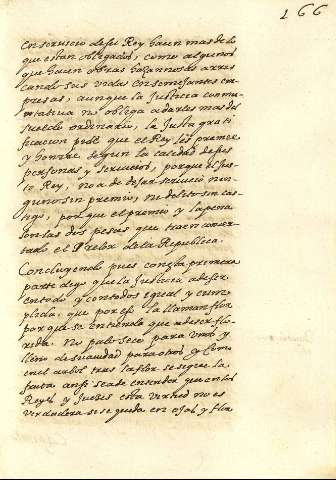 166
en servicio de su Rey hacen mas de lo
que estan obligados, como algunos
que hacen obras hazannosas arres
cando sus vidas en semejantes em
presas, aunque la Justicia conmu
tativa no obliga a darles mas del
sueldo ordinario, la Justa grati
ficacion pide que el Rey los premie
y honrre, segun la calidad de sus
personas y servicios, porque el Jus
to Rey, no a de dejar servicio nin
guno sin premio, ni delito sin cas
tigo, porque el premio y la pena
son las dos pesas que traen concer
tado el Relox de la Republica.
Concluyendo pues con esta primera
parte digo que la Justicia a de ser
en todo y con todos igual y cum
plida, que por esso la llaman flor
porque se entienda que a de ser flo
rida no palo seco para unos y
lleno de suavidad para otros y como
en el arbol tras la flor se sigue la
fruta ansi se a de entender que en los
Reyes y Jueces esta virtud no es
verdadera si se queda en ojas y flor